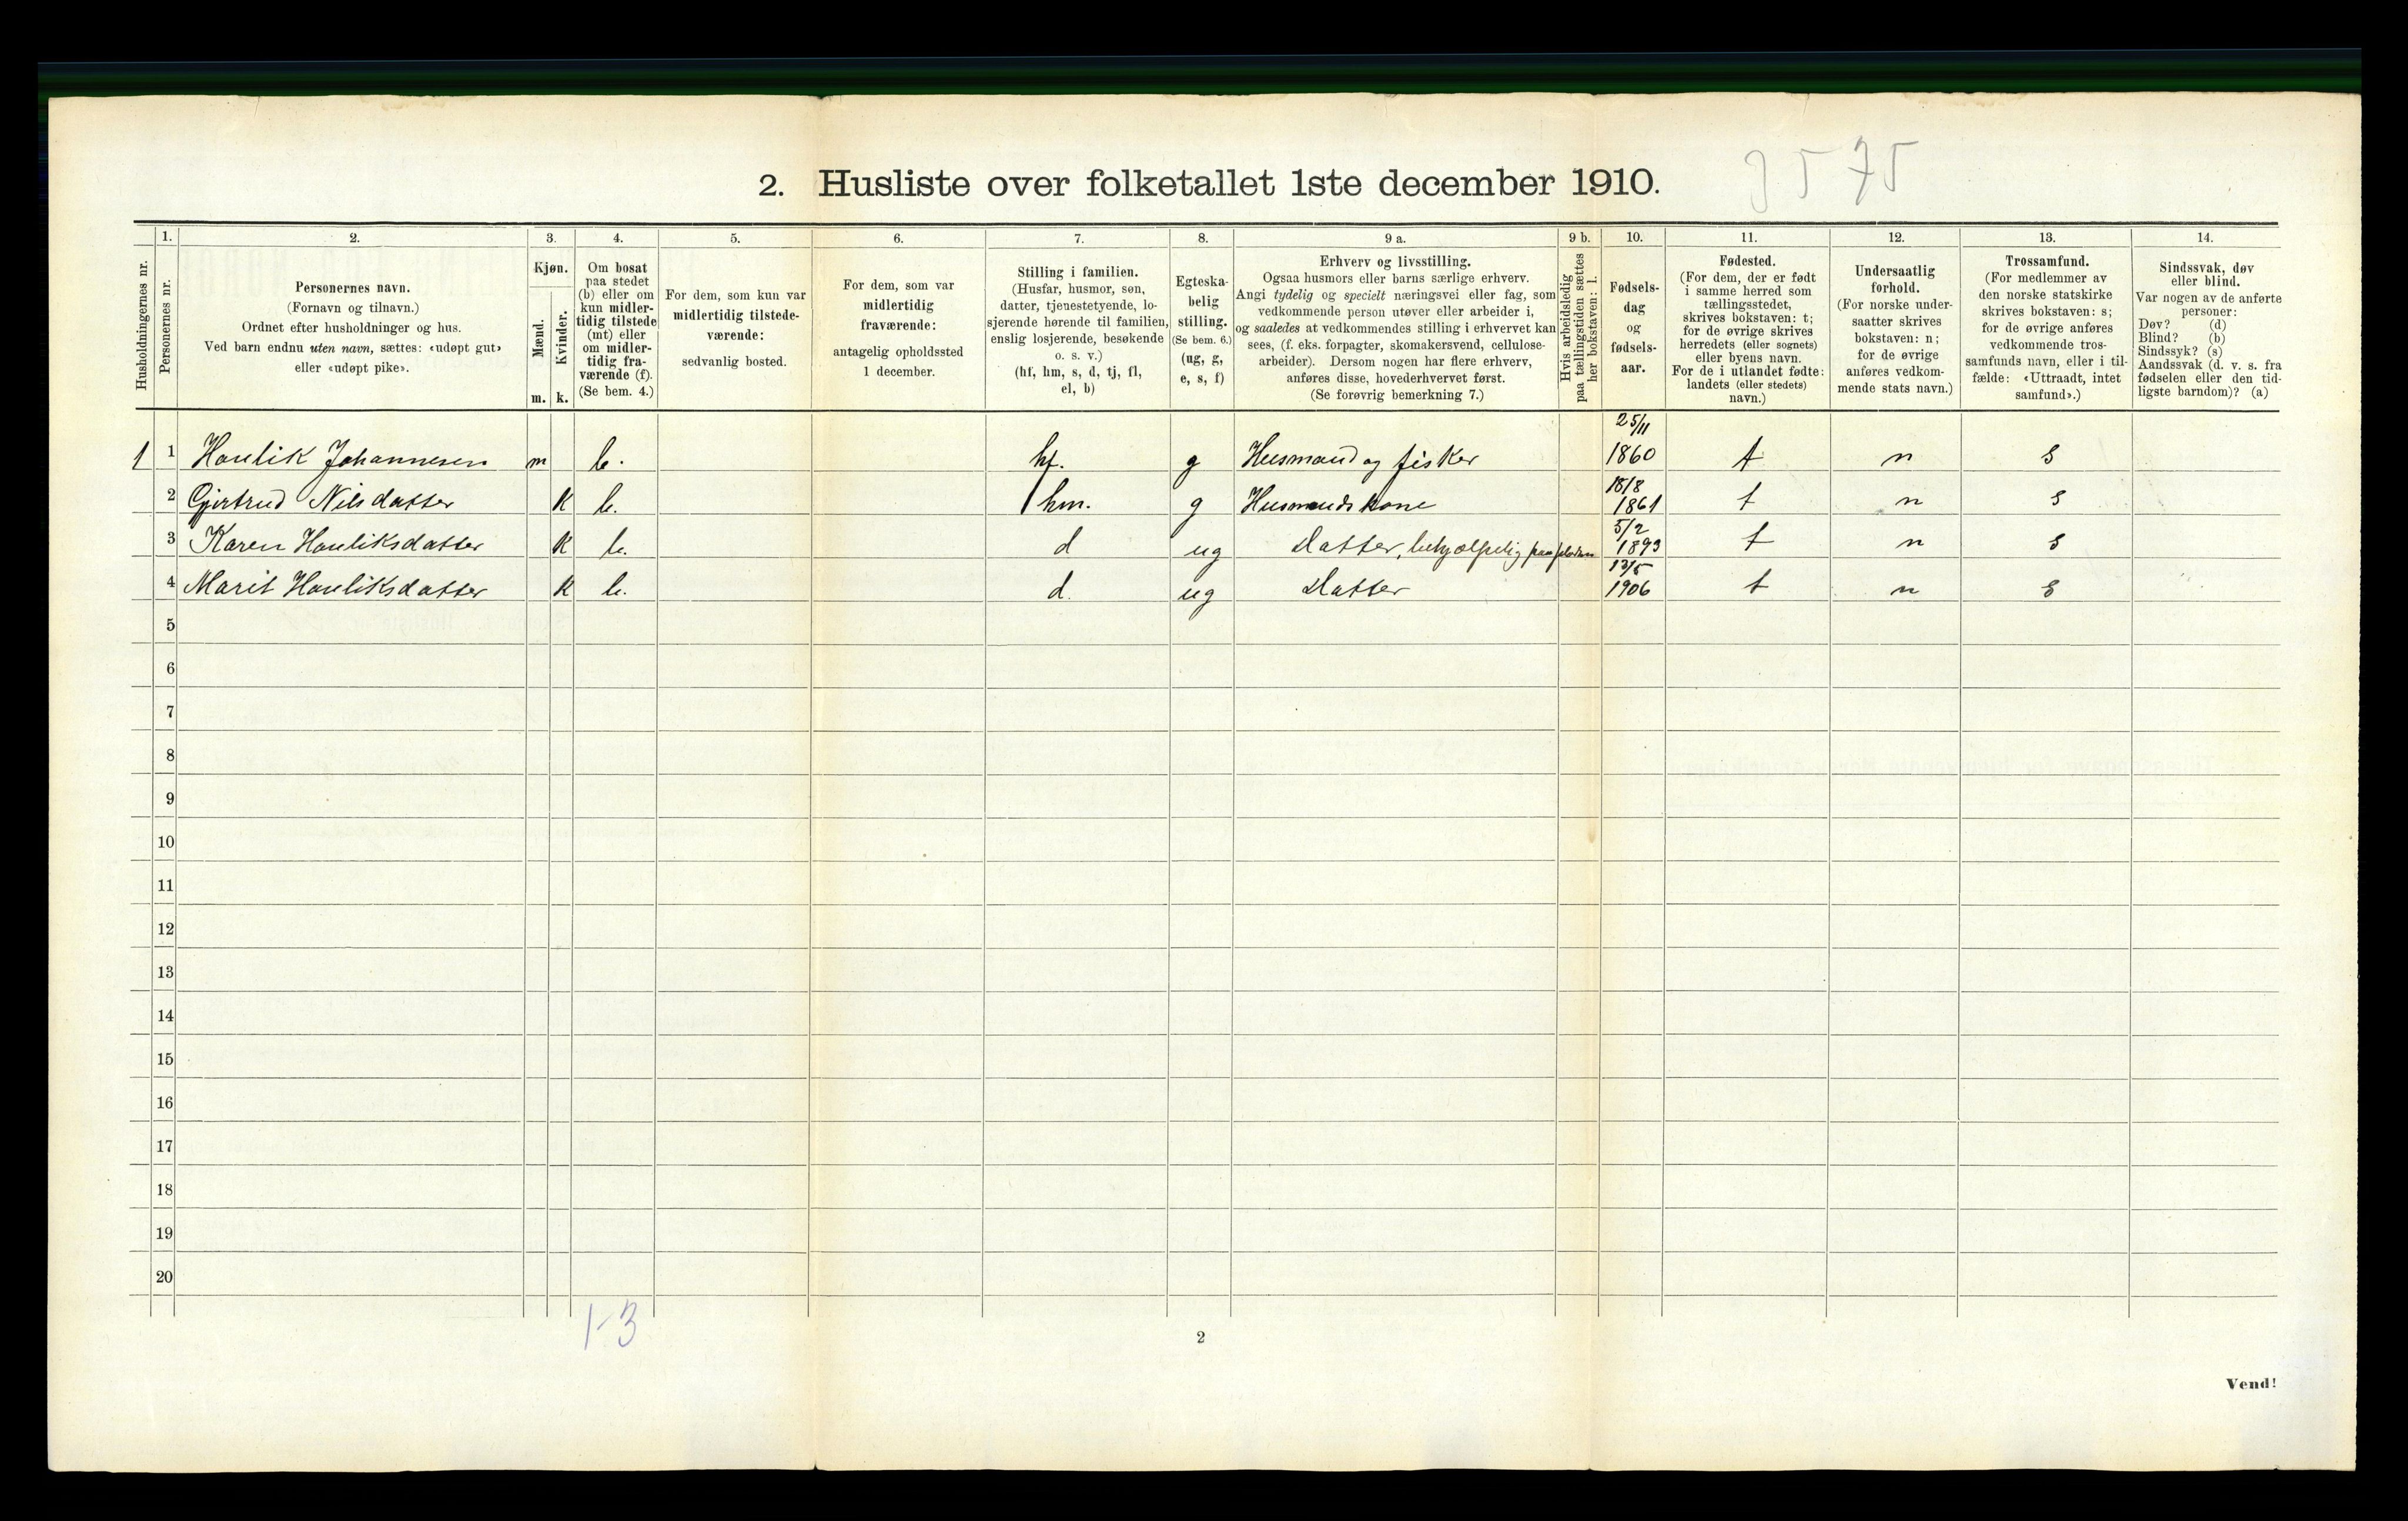 3575
2. Husliste over folketallet 1ste december 1910.
1. 2. 3. 4. 5. 6. 7. 8. 9 a. 9 b. 10. 11. 12. 13. 14.
Husholdningernes nr.
Personernes nr.
Personernes navn.
(Fornavn og tilnavn.)
Ordnet efter husholdninger og hus.
Ved barn endnu uten navn, sættes: «udøpt gut»
eller «udøpt pike».
Kjøn.
Mænd.
Kvinder.
m. k.
Om bosat
paa stedet
(b) eller om
kun midler-
tidig tilstede
(mt) eller
om midler-
tidig fra-
værende (f).
(Se bem. 4.)
For dem, som kun var
midlertidig tilstede-
værende:
sedvanlig bosted.
For dem, som var
midlertidig
fraværende:
antagelig opholdssted
1 december.
Stilling i familien.
(Husfar, husmor, søn,
datter, tjenestetyende, lo-
sjerende hørende til familien,
enslig losjerende, besøkende
o. s. v.)
(hf, hm, s, d, tj, fl,
el, b)
Egteska-
belig
stilling.
(Se bem. 6.)
(ug, g,
e, s, f)
Erhverv og livsstilling.
Ogsaa husmors eller barns særlige erhverv.
Angi tydelig og specielt næringsvei eller fag, som
vedkommende person utøver eller arbeider i,
og saaledes at vedkommendes stilling i erhvervet kan
sees, (f. eks. forpagter, skomakersvend, cellulose-
arbeider). Dersom nogen har flere erhverv,
anføres disse, hovederhvervet først.
(Se forøvrig bemerkning 7.)
Hvis arbeidsledig
paa tællingstiden sættes
her bokstaven: l.
Fødsels-
dag
og
fødsels-
aar.
Fødested.
(For dem, der er født
i samme herred som
tællingsstedet,
skrives bokstaven: t;
for de øvrige skrives
herredets (eller sognets)
eller byens navn.
For de i utlandet fødte:
landets (eller stedets)
navn.)
Undersaatlig
forhold.
(For norske under-
saatter skrives
bokstaven: n;
for de øvrige
anføres vedkom-
mende stats navn.)
Trossamfund.
(For medlemmer av
den norske statskirke
skrives bokstaven: s;
for de øvrige anføres
vedkommende tros-
samfunds navn, eller i til-
fælde: «Uttraadt, intet
samfund».)
Sindssvak, døv
eller blind.
Var nogen av de anførte
personer:
Døv? (d)
Blind? (b)
Sindssyk? (s)
Aandssvak (d. v. s. fra
fødselen eller den tid-
ligste barndom)? (a)
1 1 Haulik Johannesen m b. hf. g Husmand og fisker 25/11 1860 t n s
2 Gjertrud Nilsdatter k b. hm. g Husmandskone 18/8 1861 t n s
3 Karen Hauliksdatter k b. d ug Datter, behjælpelig paa pladsen 5/2 1893 t n s
4 Marit Hauliksdatter k b. d. ug Datter 13/5 1906 t n s
5
6
7
8
9
10
11
12
13
14
15
16
17
18
19
20
1-3
2
Vend!